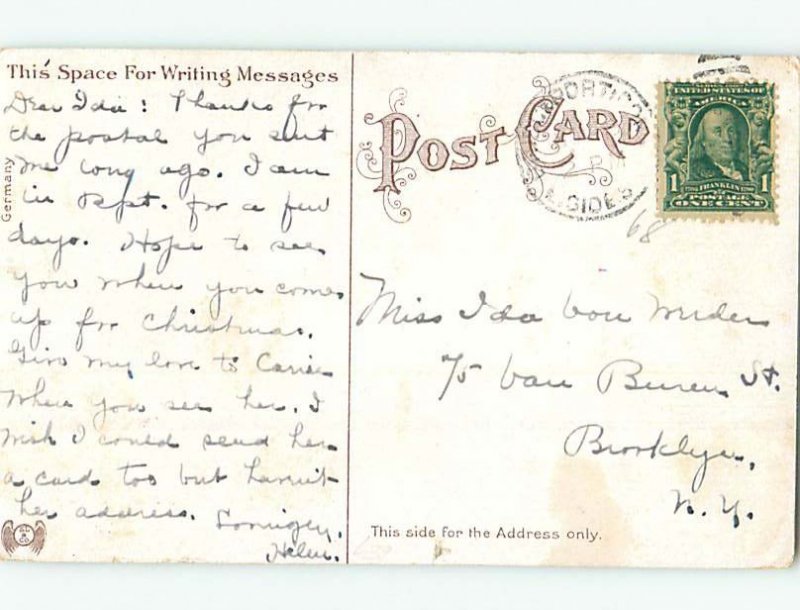 This Space For Writing Messages
Dear Ida! Thanks for
the postal you sent
me long ago. I am
in for a few
days. Hope to see
you when you come
up for Christmas.
Give my love to Carrie
when you see her. I
wish I could send her
a card too but haven't
her address.
Helen.
Germany
POST CARD
SIDES
UNITED STATES OF
AMERICA
1 FRANKLIN 1
POSTAGE
ONE CENT
68
Miss Ida Von
75 Van Buren St.
Brooklyn,
N.Y.
This side for the Address only.